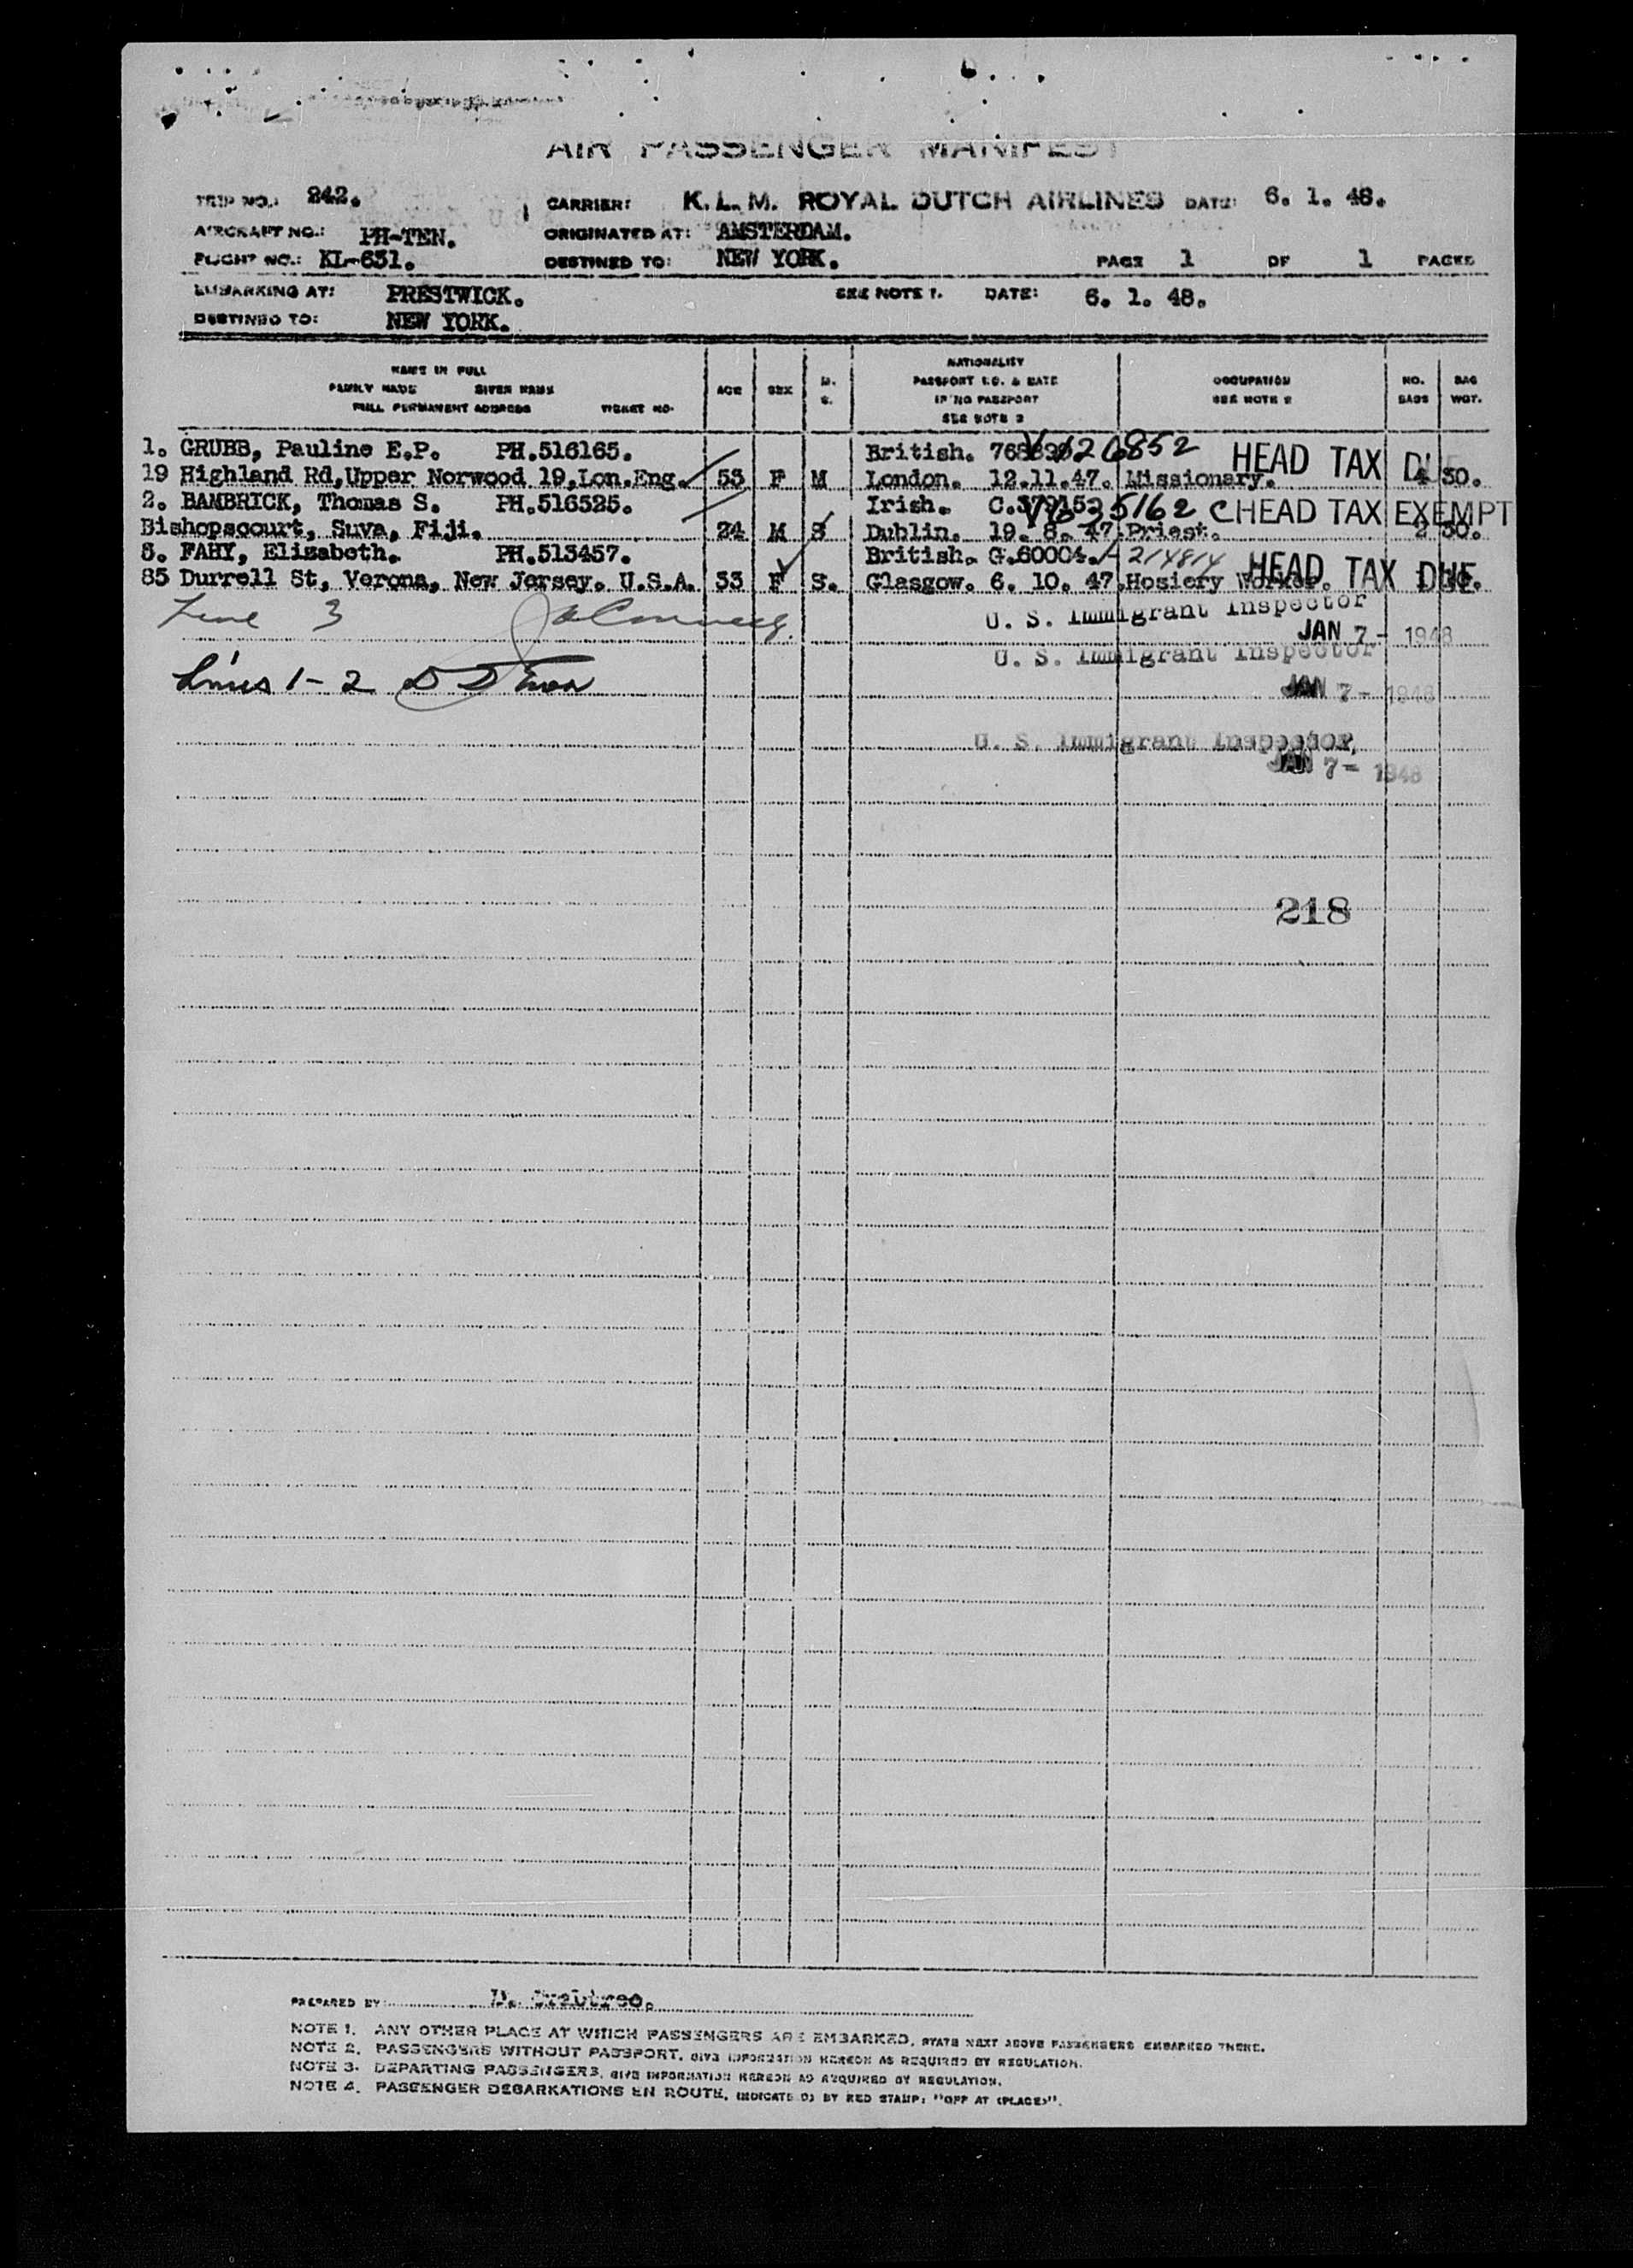 AIR PASSENGER MANIFEST
TRIP NO.: 242. CARRIER: K.L.M. ROYAL DUTCH AIRLINES DATE: 6. 1. 48.
AIRCRAFT NO.: PH-TEN. ORIGINATED AT: AMSTERDAM.
FLIGHT NO.: KL-631. DESTINED TO: NEW YORK. PAGE 1 OF 1 PAGES
EMBARKING AT: PRESTWICK. SEE NOTE 1. DATE: 6. 1. 48.
DESTINED TO: NEW YORK.
NAME IN FULL
FAMILY NAME GIVEN NAME
FULL PERMANENT ADDRESS TICKET NO.
AGE SEX M. S.
NATIONALITY
PASSPORT NO. & DATE
IF NO PASSPORT
SEE NOTE 2
OCCUPATION
SEE NOTE 2
NO. BAGS
BAG WGT.
1. GRUBB, Pauline E.P. PH.516165. British. 626852 HEAD TAX
19 Highland Rd,Upper Norwood 19,Lon.Eng. 53 F M London. 12.11.47. Missionary. 30.
2. BAMBRICK, Thomas S. PH.516525. Irish. 35162 HEAD TAX EXEMPT
Bishopscourt, Suva, Fiji. 24 M S Dublin. 19. 8. 47. Priest. 2 30.
3. FAHY, Elizabeth. PH.513457. British. G.60004. 214814 HEAD TAX DUE
85 Durrell St, Verona, New Jersey. U.S.A. 33 F S. Glasgow. 6. 10. 47. Hosiery Worker.
Line 3 U. S. Immigrant Inspector
JAN 7 - 1948
U. S. Immigrant Inspector
Lines 1 - 2
JAN 7 - 1948
U. S. Immigrant Inspector
JAN 7 - 1948
218
PREPARED BY: D. Crabtree.
NOTE 1. ANY OTHER PLACE AT WHICH PASSENGERS ARE EMBARKED, STATE NEXT ABOVE PASSENGERS EMBARKED THERE.
NOTE 2. PASSENGERS WITHOUT PASSPORT, GIVE INFORMATION HEREON AS REQUIRED BY REGULATION.
NOTE 3. DEPARTING PASSENGERS, GIVE INFORMATION HEREON AS REQUIRED BY REGULATION.
NOTE 4. PASSENGER DEBARKATIONS EN ROUTE, INDICATED BY RED STAMP: "OFF AT (PLACE)".